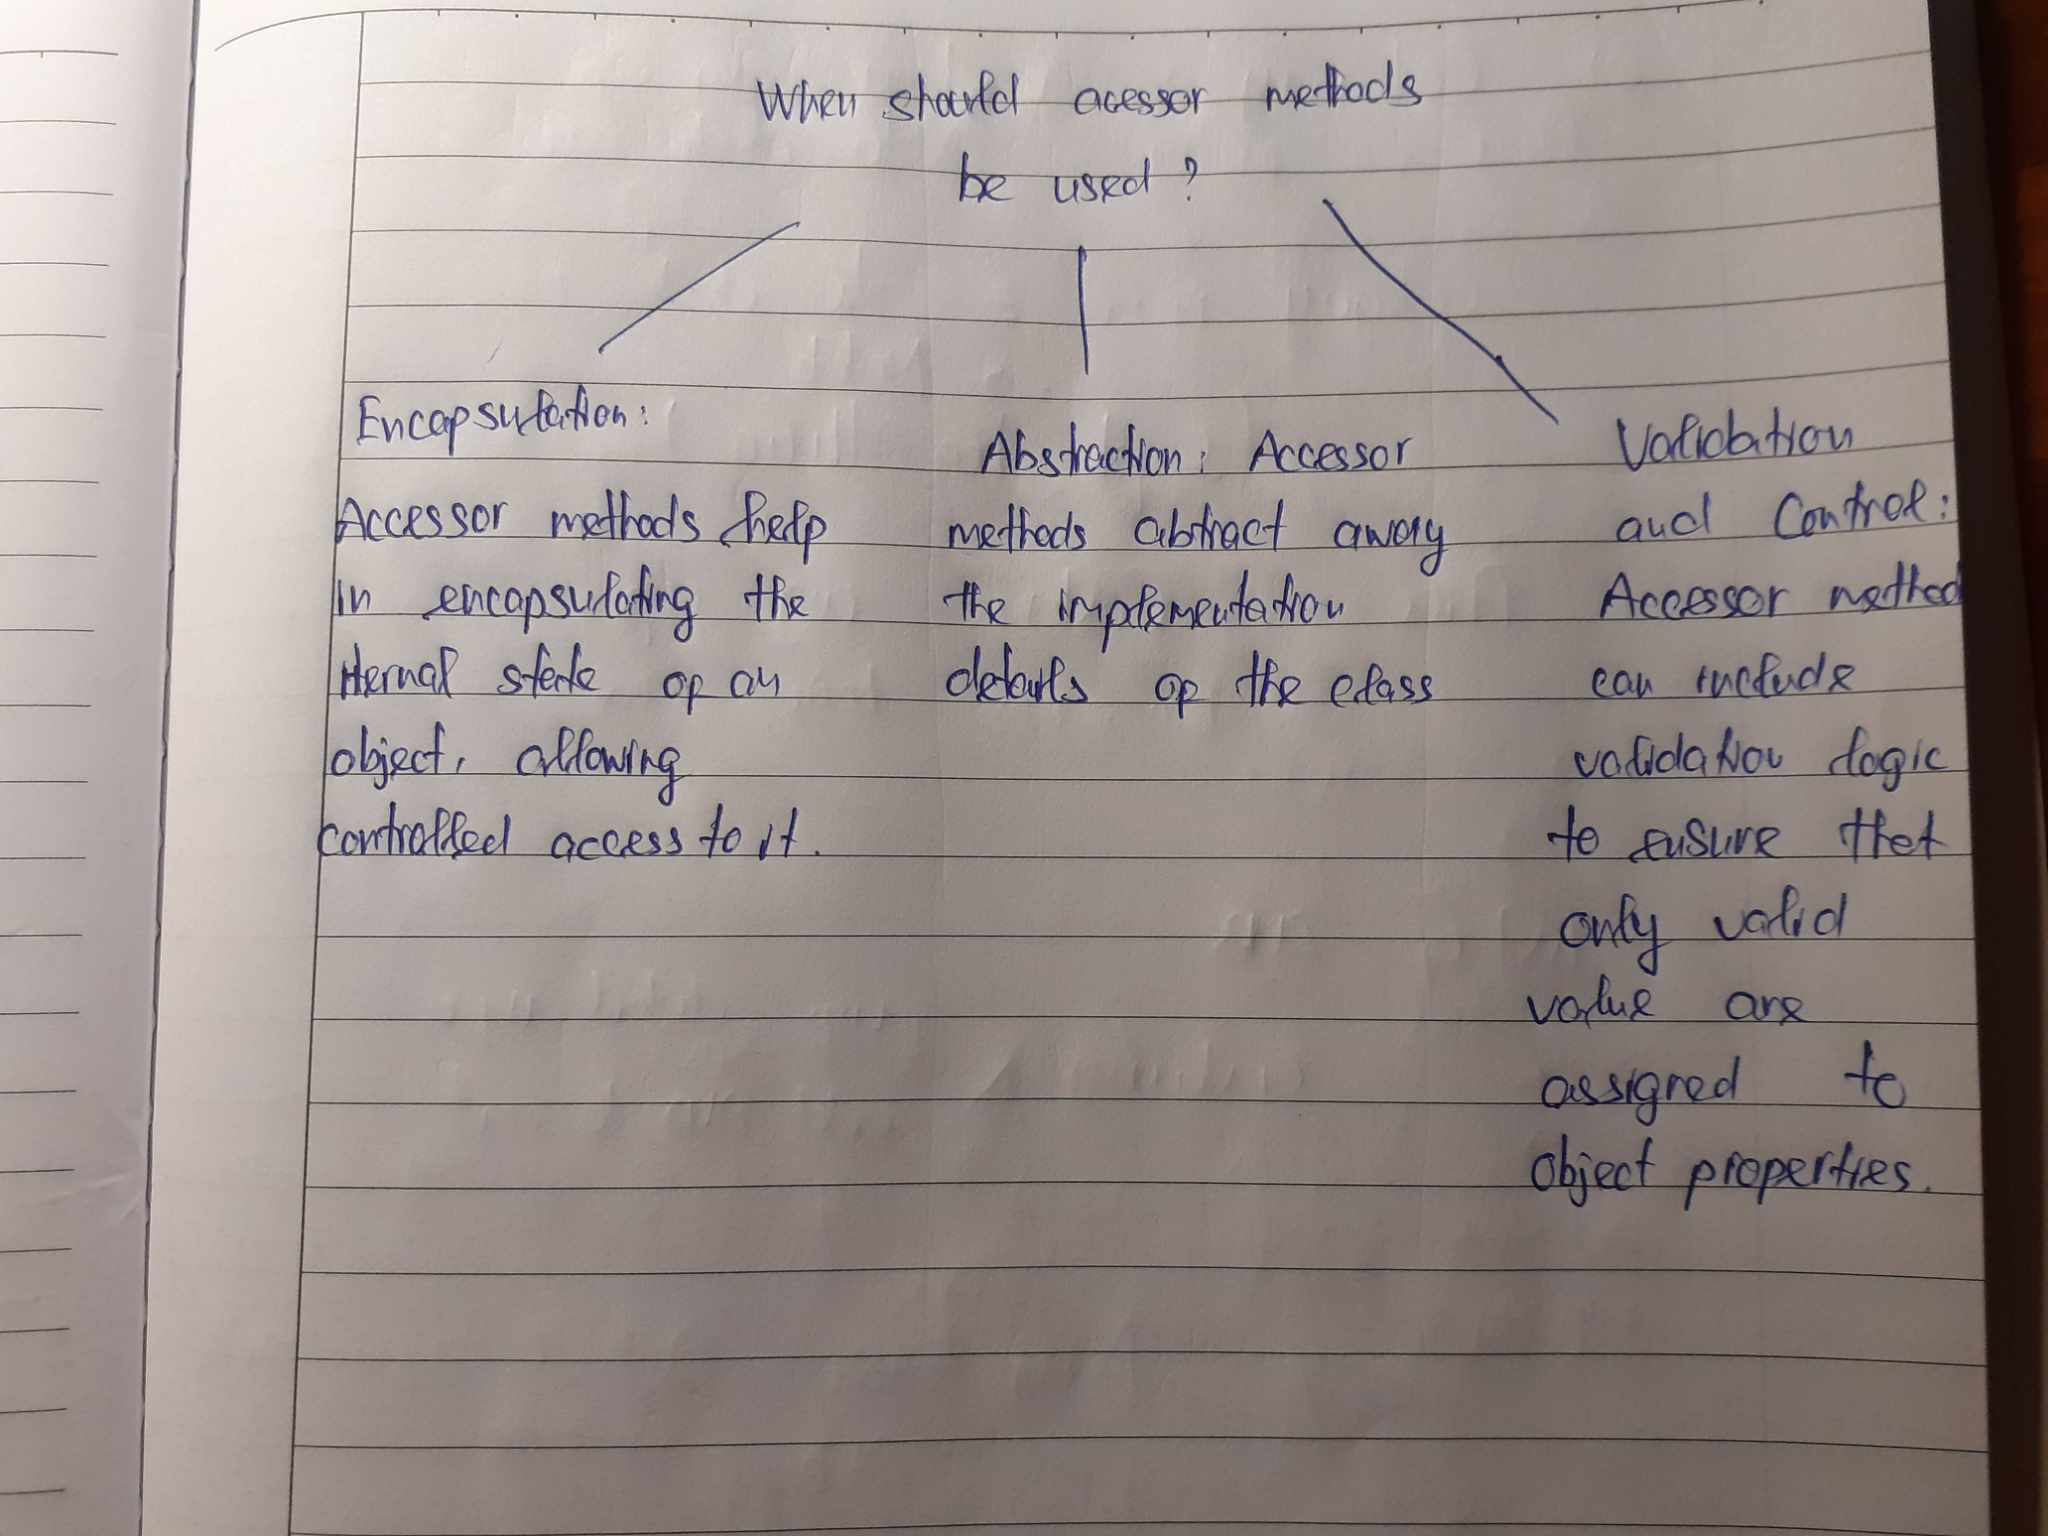 When should acessor methods
be used?
Encapsulation:
Accessor methods help
in encapsulating the
iternal state of an
object, allowing
controlled access to it.
Abstraction: Accessor
methods abtract away
the implementation
details of the class
Validation
and Control:
Accessor method
can include
validation logic
to ensure that
only valid
value are
assigned to
object properties.